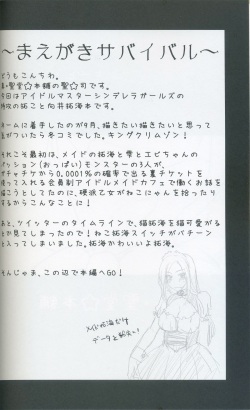 ～まえがきサバイバル～
うもこんちわ。
聖堂☆本舗の聖☆司です。
回はアイドルマスターシンデレラガールズの
攻の拓こと向井拓海本です。
ームに着手したのが9月、描きたい描きたいと思って
がついたら冬コミでした。キングクリムゾン！
れこそ最初は、メイドの拓海と雫とエビちゃんの
ッション（おっぱい）モンスターの3人が、
ガチャチケから0.0001%の確率で出る裏チケットを
って入れる会員制アイドルメイドカフェで働くお話を
こうとしてたのに、硬派乙女がねこにゃんを拾ったり
するからこんなことに！
と、ツイッターのタイムラインで、猫拓海を猫可愛がる
見てしまったので！ねこ拓海スイッチがバチーン
入ってしまいました。拓海かわいいよ拓海。
んじゃま、この辺で本編へGO！
メイド拓海だけ
データと